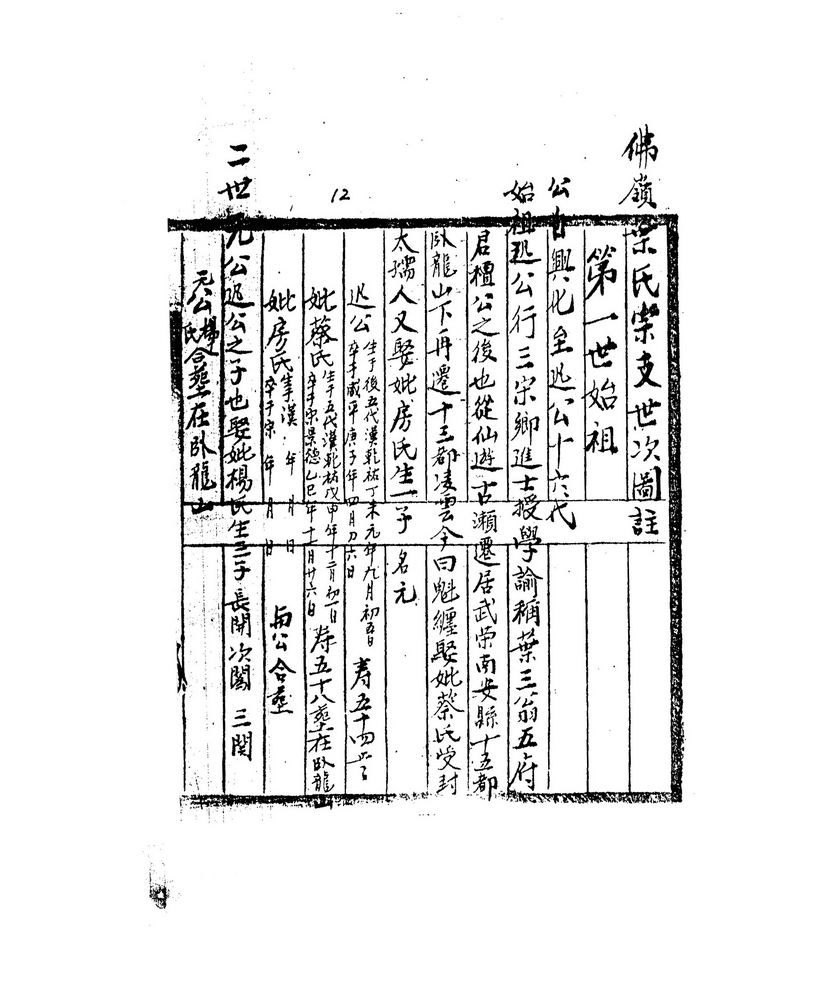 佛嶺葉氏榮支世次圖註
第一世始祖
公自興化至遲公十六代
始祖遲公行三宋鄉進士授學諭稱葉三翁五府
君檀公之後也從仙遊古瀨遷居武荣南安縣十五都
臥龍山下再遷十三都凌雲今曰魁纏娶妣蔡氏受封
太孺人又娶妣房氏生一子名元
遲公 生于後五代漢乾祐丁未元年九月初五日 卒于咸平庚子年四月初六日 寿五十四
妣蔡氏 生于五代漢乾祐戊申年十二月初一日 卒于宋景德乙巳年十一月廿六日 寿五十八塟在卧龍山
妣房氏 生于漢 年 月 日 卒于宋 年 月 日 与公合塟
二世元公遲公之子也娶妣楊氏生三子長開次闔三関
元公楊氏合塟在卧龍山
12